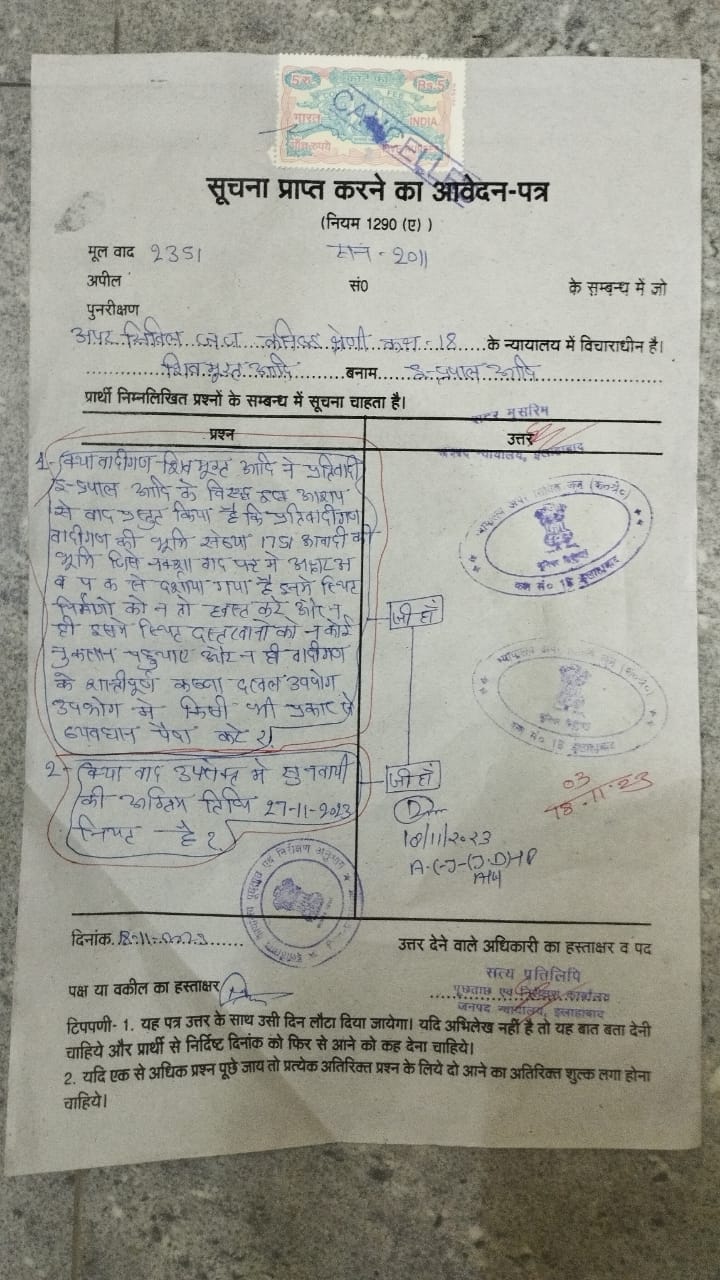 5 रु
कोर्ट फी
Rs.5
भारत
INDIA
पाँच रुपये
CANCELLED
सूचना प्राप्त करने का आवेदन-पत्र
(नियम 1290 (ए) )
मूल वाद 2351 सन - 2011
अपील सं0 के सम्बन्ध में जो
पुनरीक्षण
अपर सिविल जज कनिष्ठ श्रेणी कक्ष - 18 के न्यायालय में विचाराधीन है।
शिवमूरत आदि बनाम आदि
प्रार्थी निम्नलिखित प्रश्नों के सम्बन्ध में सूचना चाहता है।
सदर मुंसरिम
जनपद न्यायालय, इलाहाबाद
प्रश्न उत्तर
1- क्या वादीगण शिवमूरत आदि ने प्रतिवादी
आदि के विरुद्ध इस आशय
से वाद प्रस्तुत किया है कि प्रतिवादीगण
वादीगण की भूमि संख्या 1751 आबादी की
भूमि जिसे नक्शा वाद पत्र में अक्षर अ
ब प क से दर्शाया गया है इसमे स्थित
निर्माणों को न तो ध्वस्त करे और न
ही इसमे स्थित दरख्तानों को न कोई
नुकसान पहुचाए और न ही वादीगण
के शान्तीपूर्ण कब्जा दखल उपयोग
उपभोग में किसी भी प्रकार से
व्यवधान पैदा करे ?
जी हाँ
2- क्या वाद उपरोक्त मे सुनवायी
की अग्रिम तिथि 27-11-2023
नियत है ?
जी हाँ
18/11/2023
03
18.11.23
कक्ष सं० 18 इलाहाबाद
कक्ष सं० 18 इलाहाबाद
दिनांक. 18-11-2023
उत्तर देने वाले अधिकारी का हस्ताक्षर व पद
सत्य प्रतिलिपि
पक्ष या वकील का हस्ताक्षर
पूछताछ एवं निरीक्षण कार्यालय
जनपद न्यायालय, इलाहाबाद
टिपपणी- 1. यह पत्र उत्तर के साथ उसी दिन लौटा दिया जायेगा। यदि अभिलेख नहीं है तो यह बात बता देनी
चाहिये और प्रार्थी से निर्दिष्ट दिनांक को फिर से आने को कह देना चाहिये।
2. यदि एक से अधिक प्रश्न पूछे जाय तो प्रत्येक अतिरिक्त प्रश्न के लिये दो आने का अतिरिक्त शुल्क लगा होना
चाहिये।